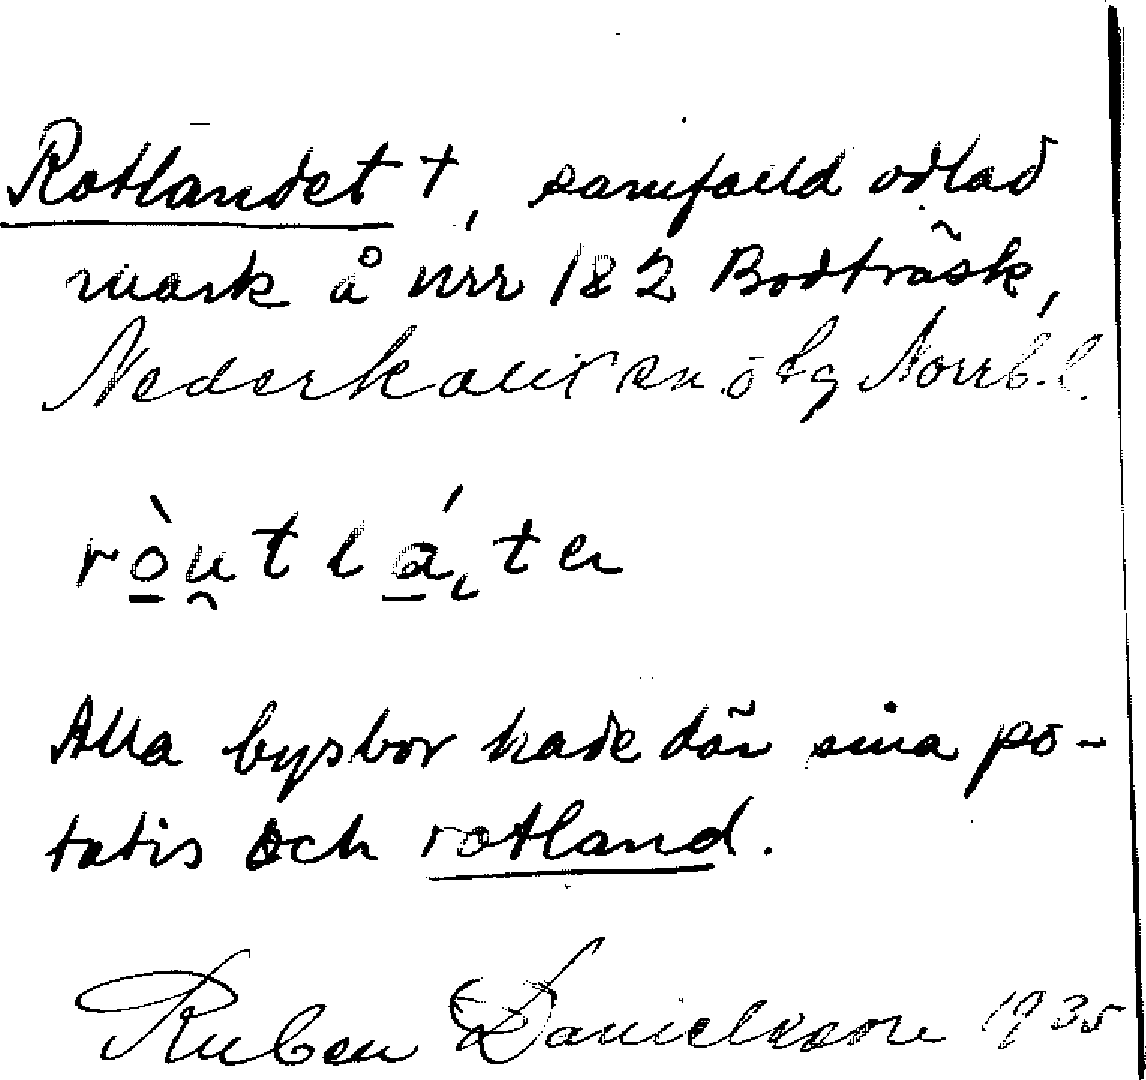 Rotlandet +, samfälld odlad
mark å nrr 182 Bodträsk,
Nederkalix sn ö tg Norrb. l.
ròu̯tlá₍ten
Alla bysbor hade där sina po-
tatis och rotland.
Ruben Danielsson 1935